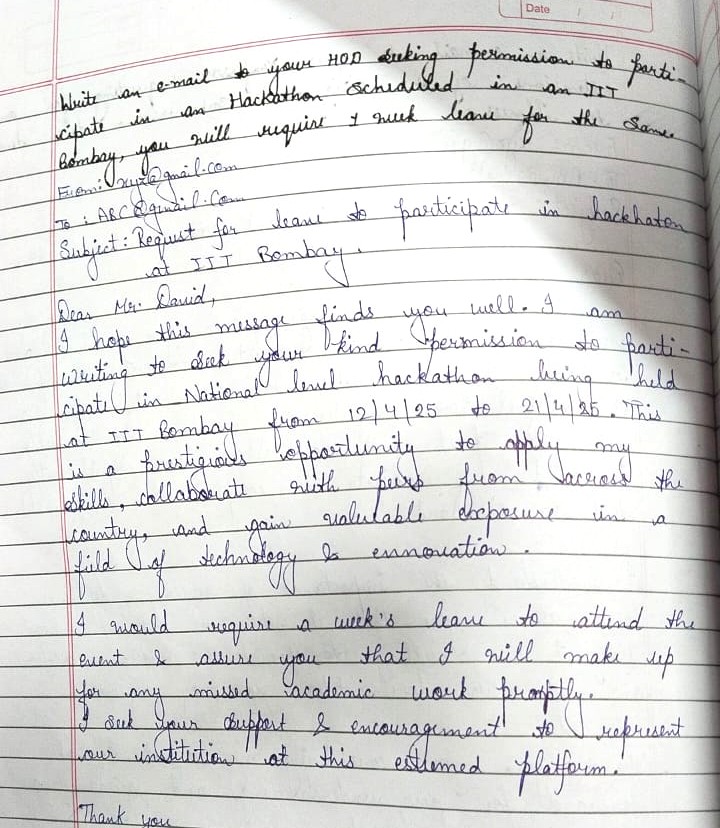 Date / /
Write an e-mail to your HOD seeking permission to parti-
cipate in an Hackathon scheduled in an IIT
Bombay, you will require 1 week leave for the same.
From: xyz@gmail.com
To : ABC@gmail.com
Subject: Request for leave to participate in hackhaton
at IIT Bombay.
Dear Mr. David,
I hope this message finds you well. I am
writing to seek your kind permission to parti-
cipate in National level hackathon being held
at IIT Bombay from 12/4/25 to 21/4/25. This
is a prestigious opportunity to apply my
skills, collaborate with peers from across the
country, and gain valulable exposure in a
field of technology & ennovation.
I would require a week's leave to attend the
event & assure you that I will make up
for any missed academic work promptly.
I seek your support & encouragement to represent
our institution at this esteemed platform.
Thank you